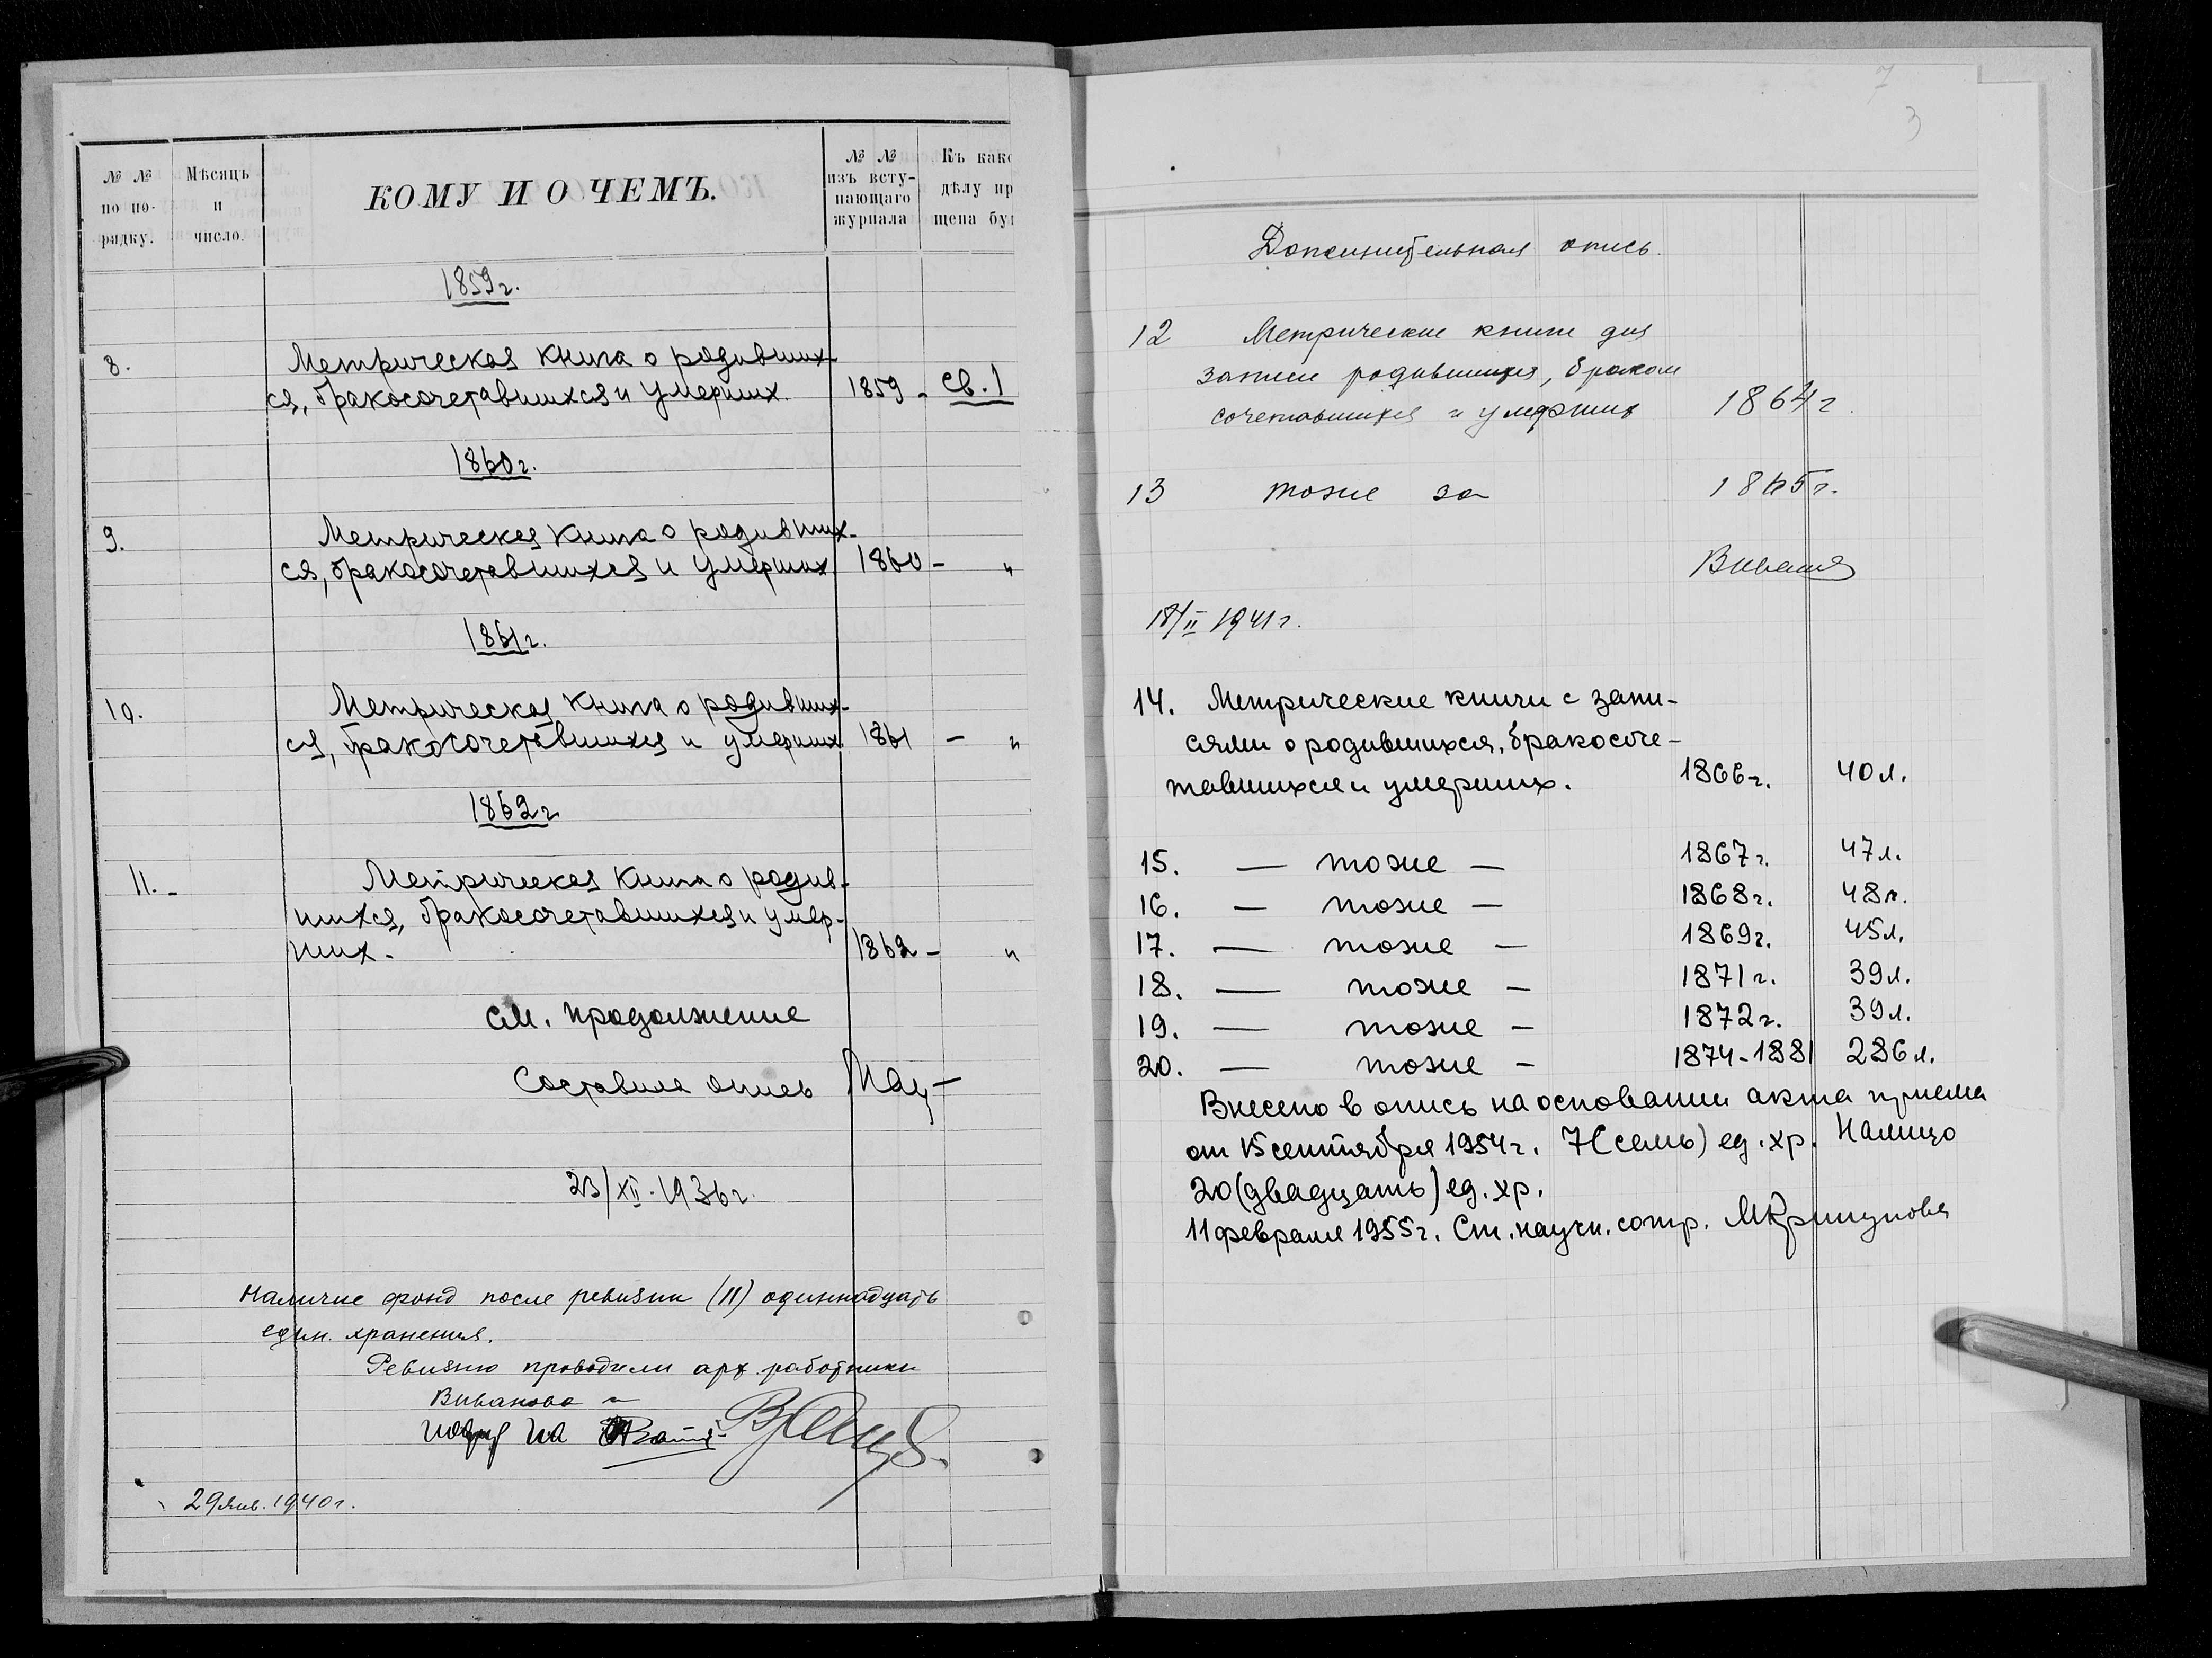 № № по по- рядку.
Мѣсяцъ и число.
КОМУ И О ЧЕМЪ.
№ № изъ всту- пающаго журнала
Къ како дѣлу пр щена бу
1859 г.
8. Метрическая книга о родивших-
ся, бракосочетавшихся и умерших. 1859 - св. 1
1860 г.
9. Метрическая книга о родивших-
ся, бракосочетавшихся и умерших 1860 - "
1861 г.
10. Метрическая книга о родивших-
ся, бракосочетавшихся и умерших 1861 - "
1862 г
11. - Метрическая книга о родив-
шихся, бракосочетавшихся и умер-
ших. 1862 - "
см. продолжение
Составила опись
23/XII-1936 г.
Наличие фонд после ревизии (11) одиннадцать
един. хранения.
Ревизию проводили арх. работники
Виванова и
29 янв. 1940 г.
7
3
Дополнительная опись.
12 Метрические книги для
записи родившихся, браком
сочетавшихся и умерших 1864 г.
13 тоже за 1865 г.
18/II 1941 г.
14. Метрические книги с запи-
сями о родившихся, бракосоче-
тавшихся и умерших. 1866 г. 40 л.
15. — тоже — 1867 г. 47 л.
16. — тоже — 1868 г. 48 л.
17. — тоже — 1869 г. 45 л.
18. — тоже — 1871 г. 39 л.
19. — тоже — 1872 г. 39 л.
20. — тоже — 1874-1881 286 л.
Внесено в опись на основании акта приема
от 15 сентября 1954 г. 7 (семь) ед. хр. Налицо
20 (двадцать) ед. хр.
11 февраля 1955 г. Ст. научн. сотр.